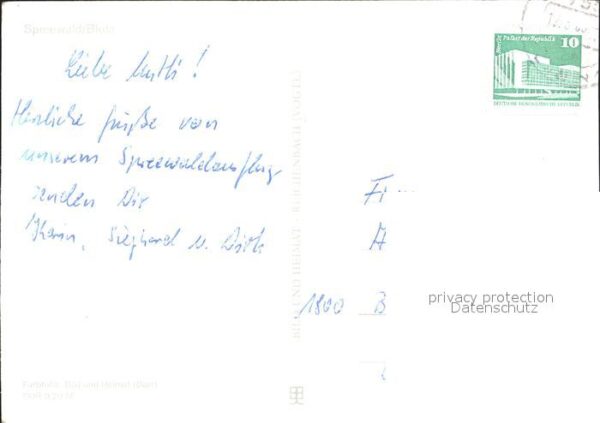 Spreewald/Blota
Liebe Mutti!
Herzliche Grüße von
unserem Spreewaldausflug
senden Dir
Karin, Sieghard u. Dirk
Berlin, Palast der Republik
10
DEUTSCHE DEMOKRATISCHE REPUBLIK
Fi
A
1800 B
privacy protection
Datenschutz
Farbfoto: Bild und Heimat